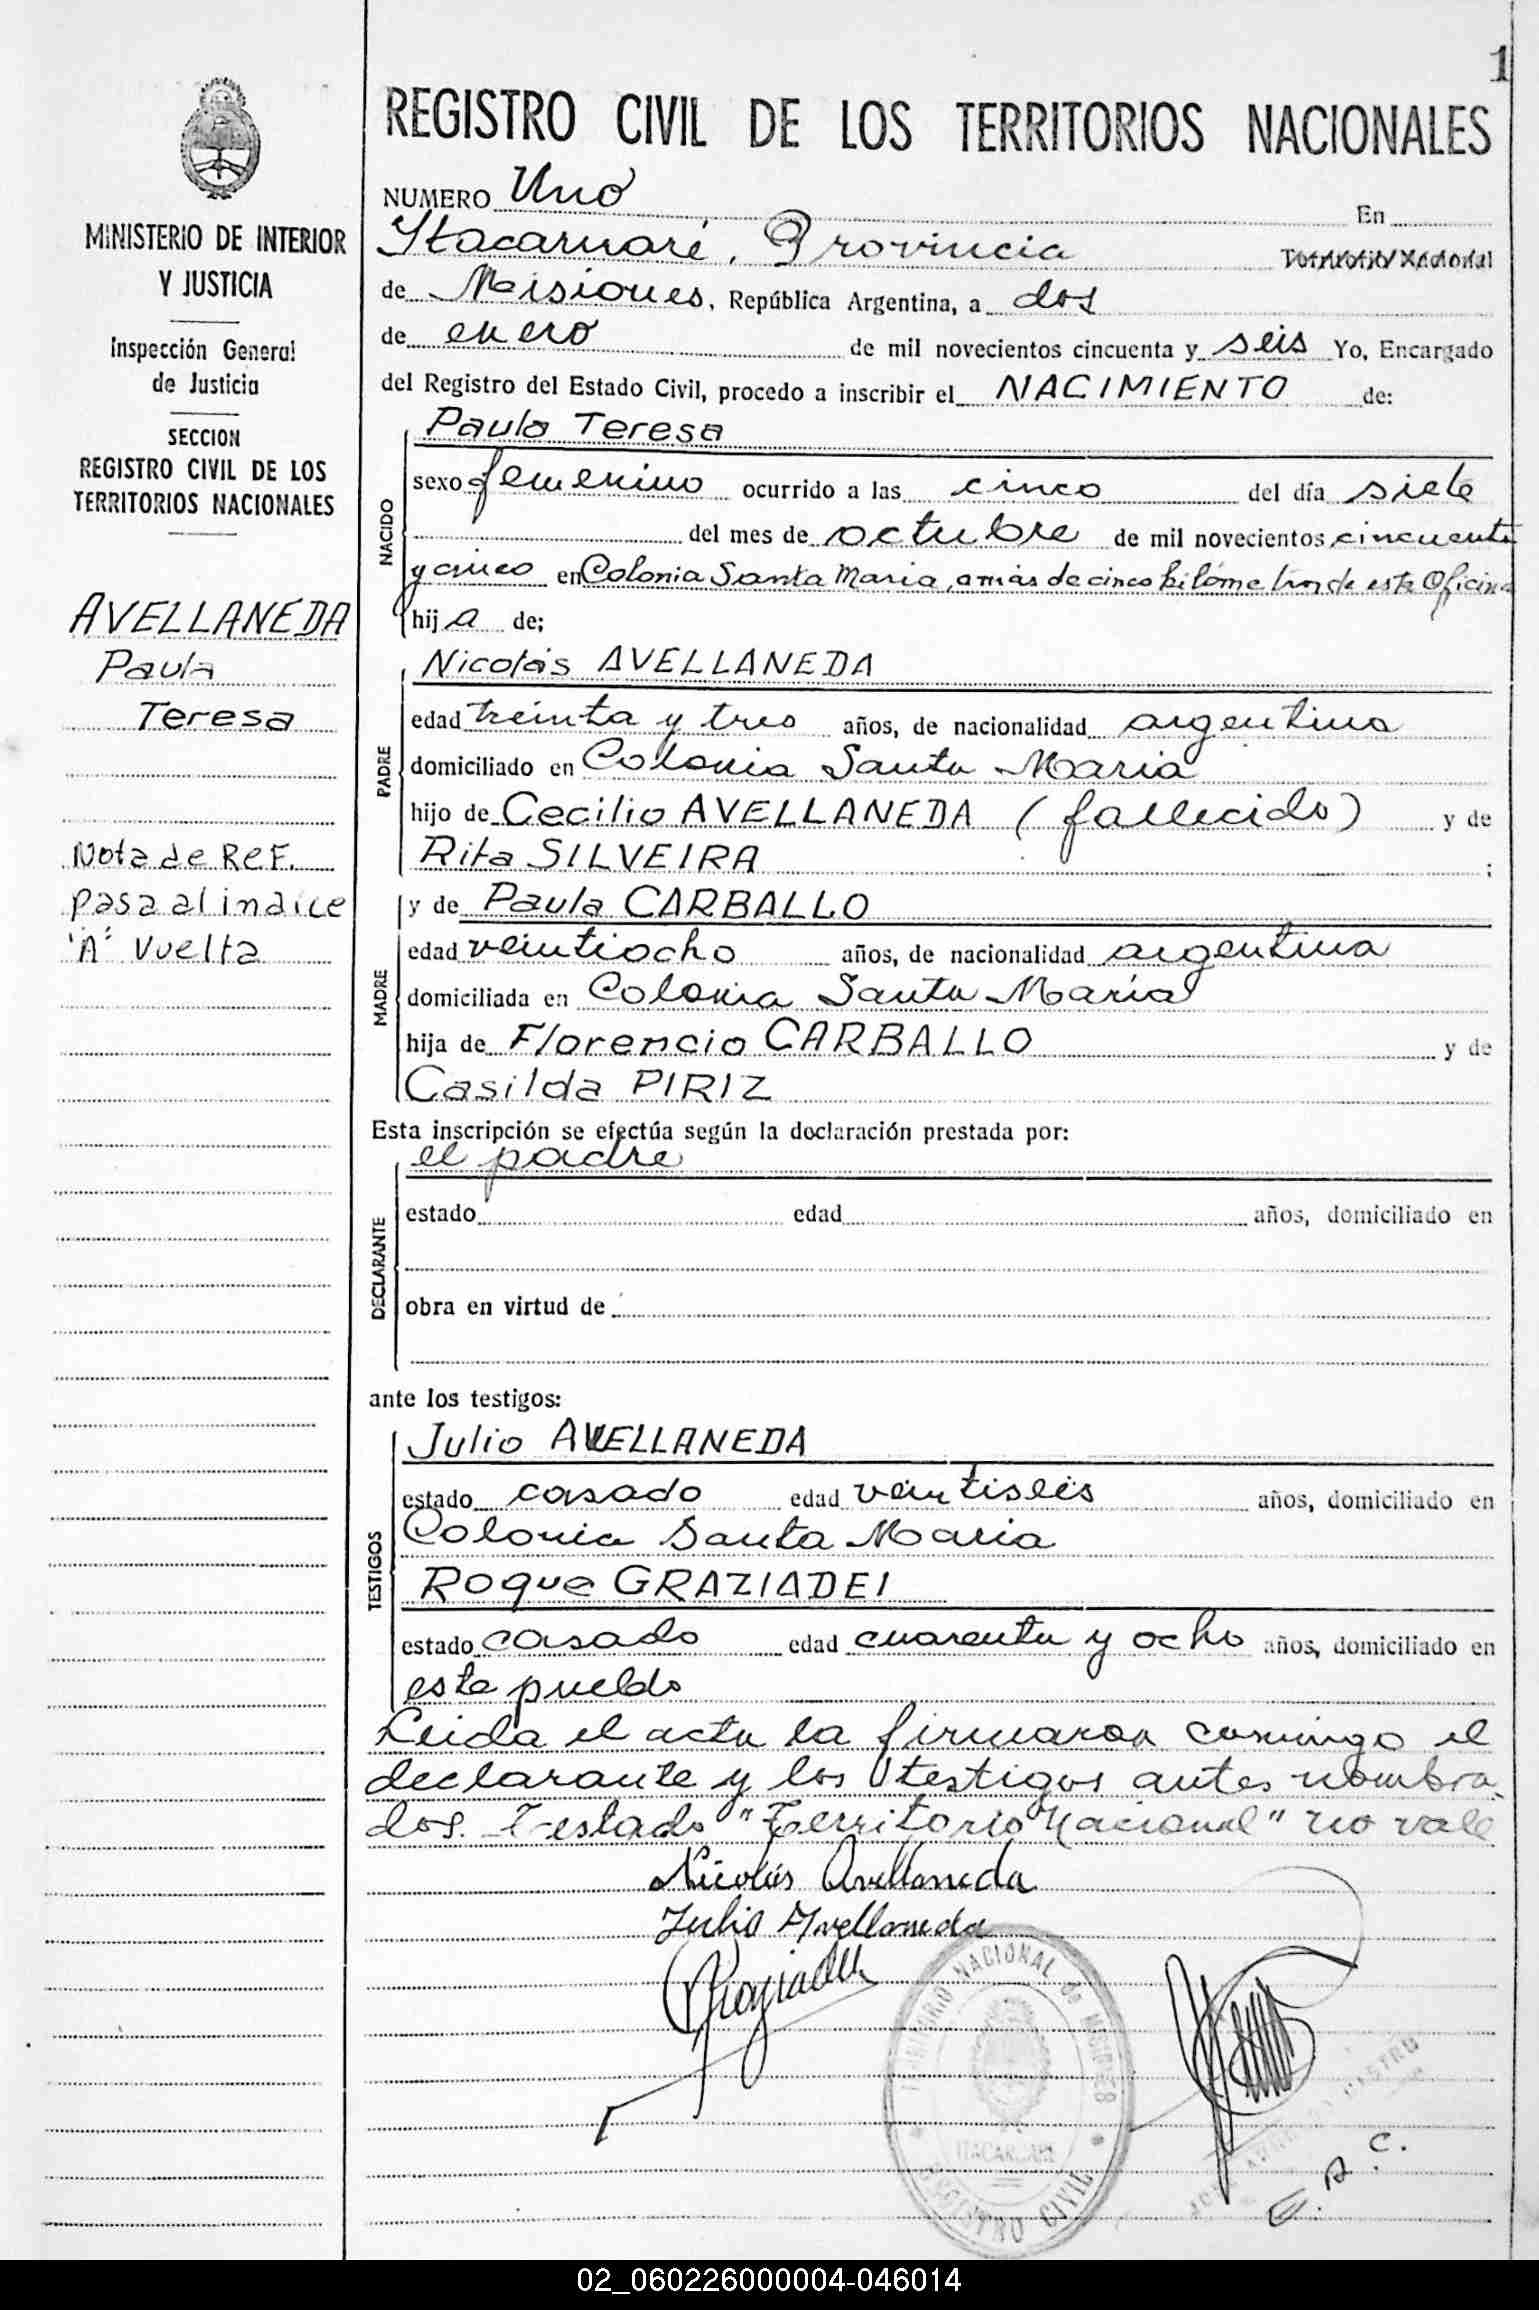 1
REGISTRO CIVIL DE LOS TERRITORIOS NACIONALES
MINISTERIO DE INTERIOR
Y JUSTICIA
Inspección General
de Justicia
SECCION
REGISTRO CIVIL DE LOS
TERRITORIOS NACIONALES
AVELLANEDA
Paula
Teresa
Nota de Ref.
pasa al indice
"A" Vuelta
NUMERO Uno En
Itacaruaré, Provincia Territorio Nacional
de Misiones, República Argentina, a dos
de enero de mil novecientos cincuenta y seis Yo, Encargado
del Registro del Estado Civil, procedo a inscribir el NACIMIENTO de:
NACIDO
Paula Teresa
sexo femenino ocurrido a las cinco del día siete
del mes de octubre de mil novecientos cincuenta
y cinco en Colonia Santa Maria, a más de cinco kilómetros de esta Oficina
hij a de;
PADRE
Nicolás AVELLANEDA
edad treinta y tres años, de nacionalidad argentina
domiciliado en Colonia Santa Maria
hijo de Cecilio AVELLANEDA (fallecido) y de
Rita SILVEIRA ;
y de Paula CARBALLO
MADRE
edad veintiocho años, de nacionalidad argentina
domiciliada en Colonia Santa María
hija de Florencio CARBALLO y de
Casilda PIRIZ
Esta inscripción se efectúa según la declaración prestada por:
DECLARANTE
el padre
estado edad años, domiciliado en
obra en virtud de
ante los testigos:
TESTIGOS
Julio AVELLANEDA
estado casado edad veintiseis años, domiciliado en
Colonia Santa Maria
Roque GRAZIADEI
estado casado edad cuarenta y ocho años, domiciliado en
este pueblo
Leida el acta la firmaron conmigo el
declarante y los testigos antes nombra
dos. Testado "Territorio Nacional" no vale
Nicolás Avellaneda
Julio Avellaneda
TERRITORIO NACIONAL de MISIONES
ITACARUARE
REGISTRO CIVIL
E. R. C.
02_060226000004-046014